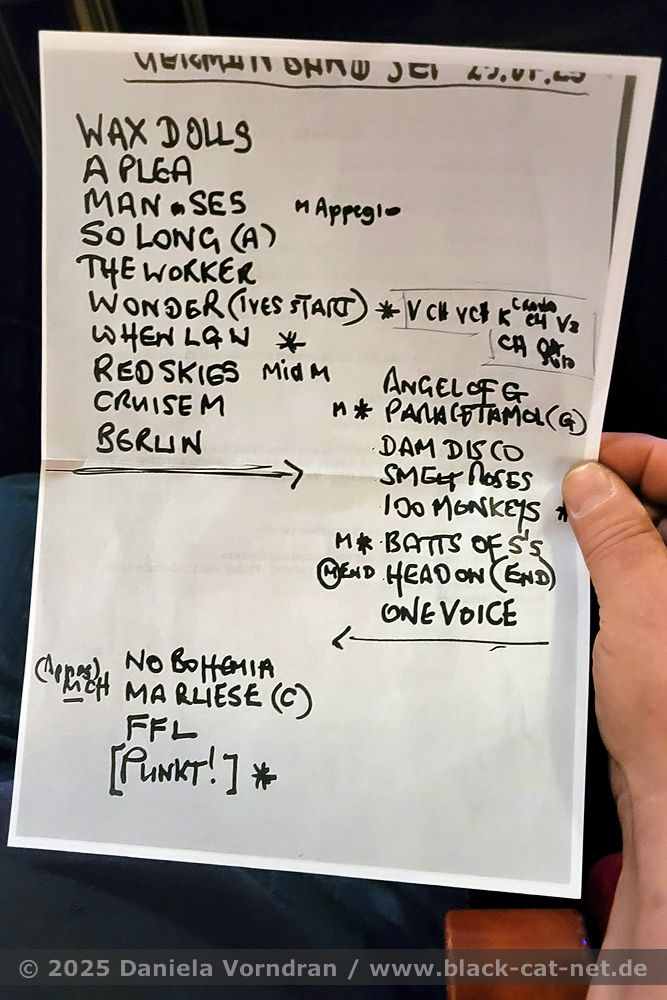 GERMAN BAND SET 29.01.25
WAX DOLLS
A PLEA
MAN • SES M Appegio
SO LONG (A)
THE WORKER
WONDER (IVES START) * V CH VCH K CH V3
CH
WHEN LGW *
RED SKIES Mid M
CRUISE M
BERLIN
ANGEL OF G
M * PARACETAMOL (G)
DAM DISCO
SMELT ROSES
100 MONKEYS *
M * BATTS OF S'S
M END HEAD ON (END)
ONE VOICE
NO BOHEMIA
MCH MARLIESE (C)
FFL
[PUNKT!] *
© 2025 Daniela Vorndran / www.black-cat-net.de